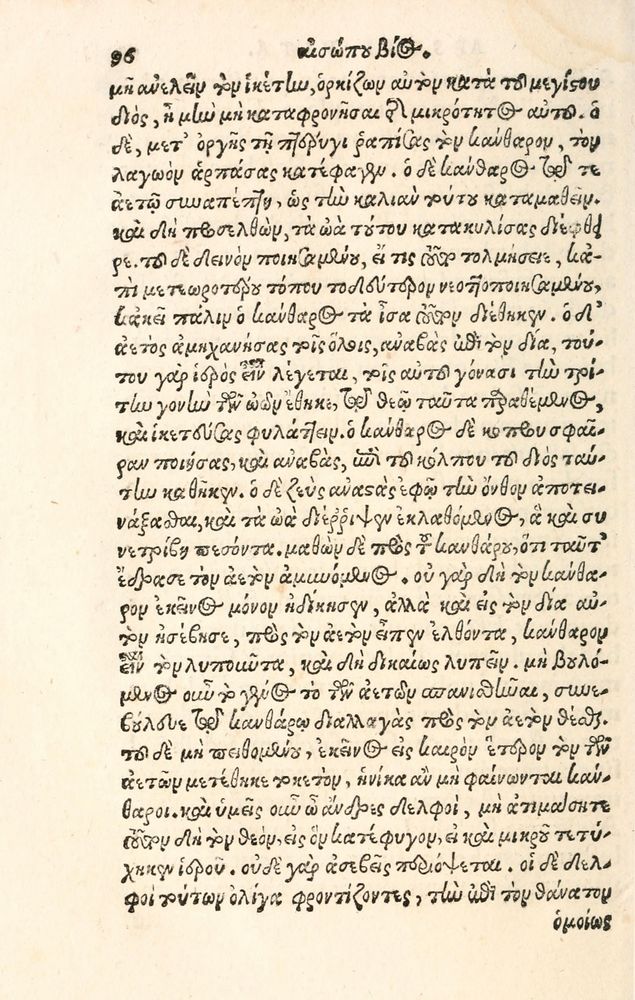 96 αἰσώπου βίος.
μὴ ἀνελεῖν τὸν ἱκέτην, ὁρκίζων αὐτὸν κατὰ τοῦ μεγίστου
διὸς, ἦ μὴν μὴ καταφρονῆσαι τῆς μικρότητος αὐτοῦ. ὁ
δὲ, μετ' ὀργῆς τῇ πτέρυγι ῥαπίσας τὸν κάνθαρον, τὸν
λαγωὸν ἁρπάσας κατέφαγεν. ὁ δὲ κάνθαρος τῷ τε
ἀετῷ συναπέπτη, ὡς τὴν καλιὰν τούτου καταμαθεῖν.
καὶ δὴ προσελθὼν, τὰ ὠὰ τούτου κατακυλίσας διέφθει
ρε. τοῦ δὲ δεινὸν ποιησαμένου, εἴ τις τοῦτο τολμήσειε, κἀ-
πὶ μετεωροτέρου τόπου τὸ δεύτερον νεοττοποιησαμένου,
κἀκεῖ πάλιν ὁ κάνθαρος τὰ ἴσα τοῦτον διέθηκεν. ὁ δ'
ἀετὸς ἀμηχανήσας τοῖς ὅλοις, ἀναβὰς ἐπὶ τὸν δία, τού-
του γὰρ ἱερὸς εἶναι λέγεται, τοῖς αὐτοῦ γόνασι τὴν τρί-
την γονὴν τῶν ὠῶν ἔθηκε, τῷ θεῷ ταῦτα παραθέμενος,
καὶ ἱκετεύσας φυλάττειν. ὁ κάνθαρος δὲ κόπρου σφαῖ-
ραν ποιήσας, καὶ ἀναβὰς, ἐπὶ τοῦ κόλπου τοῦ διὸς ταύ-
την καθῆκεν. ὁ δὲ ζεὺς ἀναστὰς ἐφ' ᾧ τὴν ὄνθον ἀποτει-
νάξασθαι, καὶ τὰ ὠὰ διέρριψεν ἐκλαθόμενος, ἃ καὶ συ
νετρίβη πεσόντα. μαθὼν δὲ πρὸς τοῦ κανθάρου, ὅτι ταῦτ'
ἔδρασε τὸν ἀετὸν ἀμυνόμενος. οὐ γὰρ δὴ τὸν κάνθα-
ρον ἐκεῖνος μόνον ἠδίκησεν, ἀλλὰ καὶ εἰς τὸν δία αὐ-
τὸν ἠσέβησε, πρὸς τὸν ἀετὸν εἶπεν ἐλθόντα, κάνθαρον
εἶναι τὸν λυποῦντα, καὶ δὴ δικαίως λυπεῖν. μὴ βουλό-
μενος οὖν τὸ γένος τὸ τῶν ἀετῶν σπανισθῆναι, συνε-
βούλευε τῷ κανθάρῳ διαλλαγὰς πρὸς τὸν ἀετὸν θέσθαι.
τοῦ δὲ μὴ πειθομένου, ἐκεῖνος εἰς καιρὸν ἕτερον τὸν τῶν
ἀετῶν μετέθηκε τοκετὸν, ἡνίκα ἂν μὴ φαίνωνται κάν-
θαροι. καὶ ὑμεῖς οὖν ὦ ἄνδρες δελφοὶ, μὴ ἀτιμάσητε
τοῦτον δὴ τὸν θεὸν, εἰς ὃν κατέφυγον, εἰ καὶ μικροῦ τετύ-
χηκεν ἱεροῦ. οὐδὲ γὰρ ἀσεβεῖς περιόψεται. οἱ δὲ δελ-
φοὶ τούτων ὀλίγα φροντίζοντες, τὴν ἐπὶ τὸν θάνατον
ὁμοίως